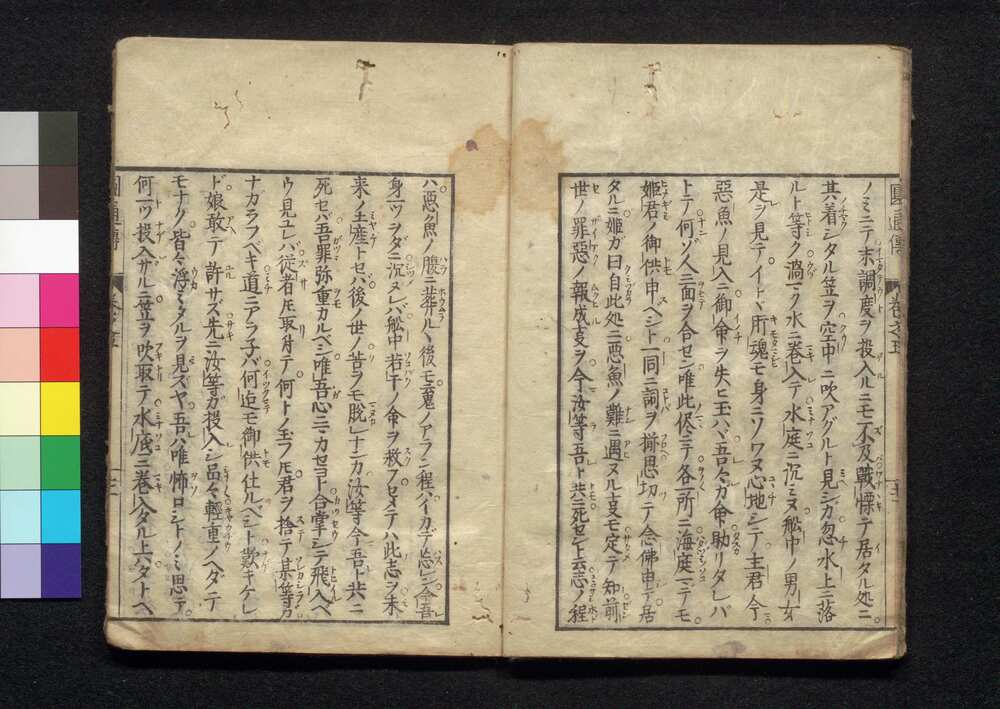 ノミニテ末調度ヲ投入ルニモ不及戰慄テ居タル処ニ
其着シタル笠ヲ空中ニ吹アグルト見シガ忽水上ニ落
ルト等ク渦マク水ニ巻入テ水庭ニ沉ミヌ舩中ノ男女
是ヲ見テイトヾ肝魂モ身ニソワヌ心地シテ主君今
惡魚ノ見入ニ御命ヲ失ヒ玉ハヾ吾々カ命助リタレバ
トテ何ゾ人ニ面ヲ合セン唯此侭ニテ各一所ニ海庭ニテモ
姫君ノ御供申ヘシト一同ニ詞ヲ揃思切テ念佛申テ居
タルニ姫ガ曰自此処ニ悪魚ノ難ニ遇ヌル支モ定テ知前
世ノ罪惡ノ報成支ヲ今汝等吾ト共ニ死セント云志ノ程
ハ悪魚ノ腹ニ葬ルヽ後モ䰟ノアラン程ハイカデ忘レン今吾
身一ツヲダニ沉ヌレバ舩中若干ノ命ヲ救フゼメテハ此志ヲ未
来ノ土産トセバ後ノ世ノ苦ヲモ脱ナンカ汝等今吾ト共ニ
死セバ吾罪弥重カルベシ唯吾心ニマカセヨト合掌シテ飛入ベ
ウ見ユレバ従者𪜈取付テ何トノ玉フ𪜈君ヲ捨テ某等カ
ナカラフベキ道ニアラ子バ何迠モ御供仕ルベシト歎キケレ
ド娘敢テ許サズ先ニ汝等ガ投入シ品々輕重ノヘダテ
モナク皆々浮ミタルヲ見ズヤ吾ハ唯怖ロシトノミ思テ
何一ツ投入ザルニ笠ヲ吹取テ水底ニ巻入タル上ハタトヘ
圓通傳
圓通傳